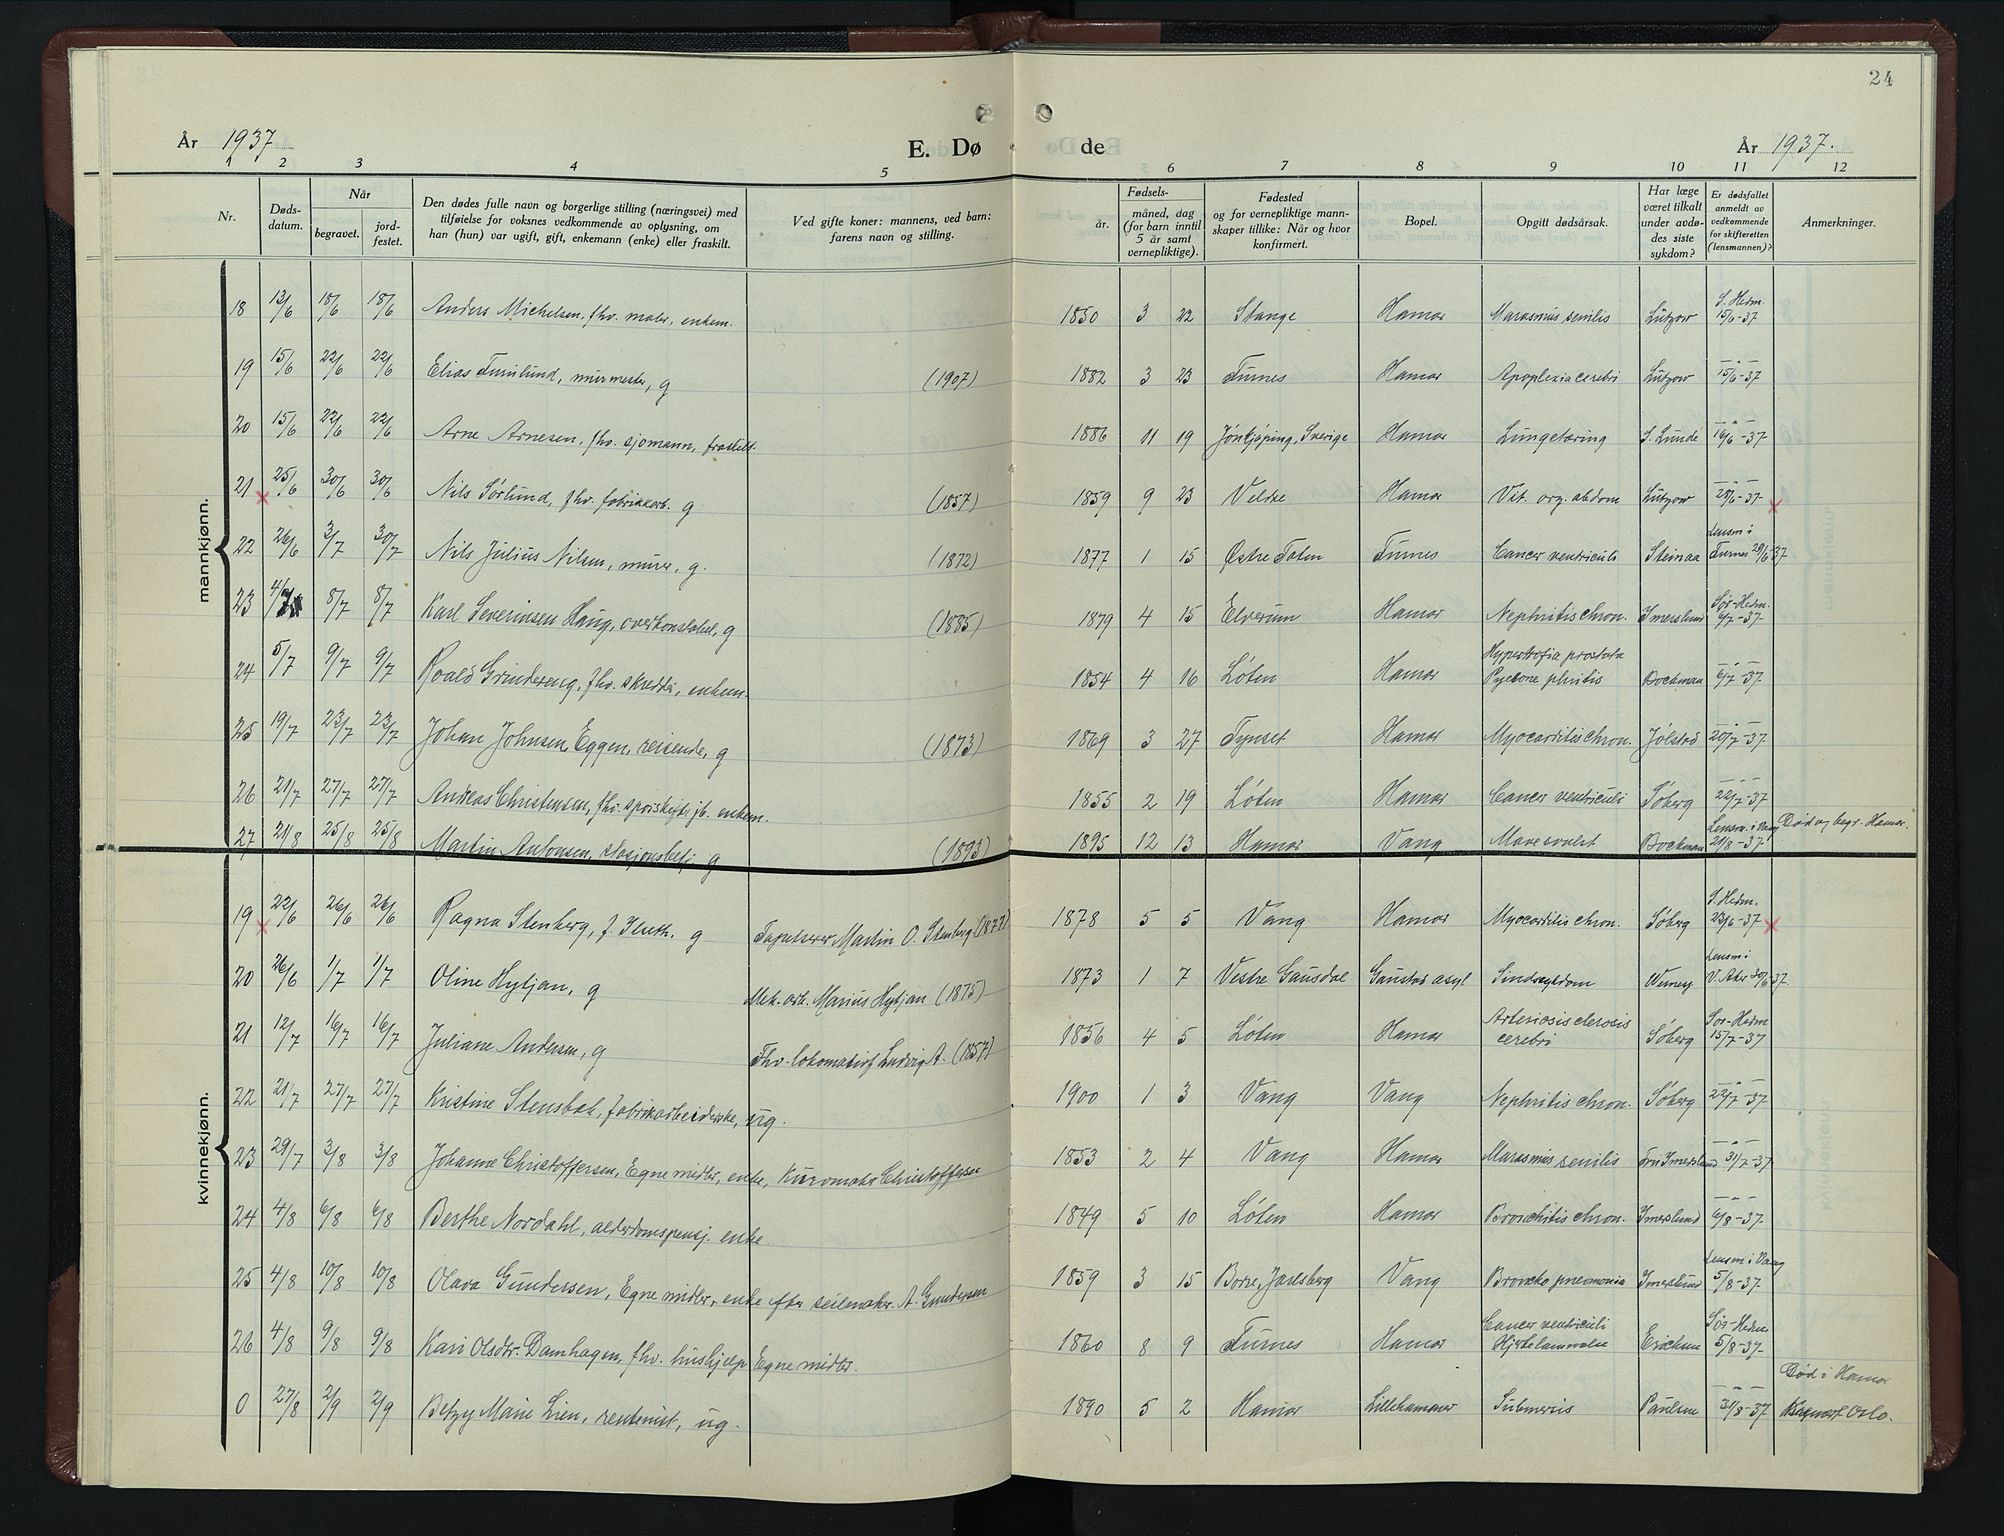 24
År 1937
E. Dø de
År 1937.
1 2 3 4 5 6 7 8 9 10 11 12
Nr.
Døds-
datum.
Når
begravet.
jord-
festet.
Den dødes fulle navn og borgerlige stilling (næringsvei) med
tilføielse for voksnes vedkommende av oplysning, om
han (hun) var ugift, gift, enkemann (enke) eller fraskilt.
Ved gifte koner: mannens, ved barn:
farens navn og stilling.
Fødsels-
år.
måned, dag
(for barn inntil
5 år samt
vernepliktige).
Fødested
og for vernepliktige mann-
skaper tillike: Når og hvor
konfirmert.
Bopel.
Opgitt dødsårsak.
Har læge
været tilkalt
under avdø-
des siste
sykdom?
Er dødsfallet
anmeldt av
vedkommende
for skifteretten
(lensmannen)?
Anmerkninger.
mannkjønn.
18 13/6 18/6 18/6 Anders Michelsen, fhv. maler, enkem. 1850 3 22 Stange Hamar Marasmus senilis Lützow S. Hedm. 15/6-37
19 15/6 22/6 22/6 Elias Furulund, murmester, g (1907) 1882 3 23 Furnes Hamar Apoplexia cerebri Lützow —"— 15/6-37
20 15/6 22/6 22/6 Arne Arnesen, fhv. sjømann, fraskilt. 1886 11 19 Jönkjöping, Sverige Hamar Lungetæring S. Lunde —"— 16/6-37
21 × 25/6 30/6 30/6 Nils Sørlund, fhv. fabrikkarb. g (1857) 1859 9 23 Veldre Hamar Vit. org. abdom Lützow 28/6-37 ×
22 26/6 3/7 30/7 Nils Julius Nilsen, murer, g. (1872) 1877 1 15 Østre Toten Furnes Cancer ventriculi Steinaa Lensm i Furnes 29/6-37
23 4/7 8/7 8/7 Karl Severinsen Haug, overkonstabel, g (1885) 1879 4 15 Elverum Hamar Nephritis chron. Imerslund Sør-Hedm. 6/7-37
24 5/7 9/7 9/7 Roald Grindereng, fhv. skredder, enkem. 1854 4 16 Løten Hamar Hypertrofia prostata Pyelone phritis Bockman —"— 6/7-37
25 19/7 23/7 23/7 Johan Johnsen Eggen, reisende, g (1873) 1869 3 27 Tynset Hamar Myocarditis chron. Jølstad —"— 20/7-37
26 21/7 27/7 27/7 Andreas Christensen, fhv. sporskifter jb. enkem. 1855 2 19 Løten Hamar Cancer ventriculi Søberg —"— 22/7-37
27 21/8 25/8 25/8 Martin Antonsen, stasjonsbetj. g (1893) 1895 12 13 Hamar Vang Mavesvulst Bockman Lensm. i Vang 21/8-37 Død og begr. Hamar.
kvinnekjønn.
19 × 22/6 26/6 26/6 Ragna Stenberg, f. g Tapetserer Martin O. Stenberg (1877) 1878 5 5 Vang Hamar Myocarditis chron. Søberg S. Hedm. 23/6-37 ×
20 26/6 1/7 1/7 Oline Hytjan, g Mek. arb. Marius Hytjan (1875) 1873 1 7 Vestre Gausdal Gaustad asyl Sindssykdom Werney Lensm i V. Aker 30/6-37
21 12/7 16/7 16/7 Juliane Andersen, g Fhv. lokomotivf Ludvig A. (1857) 1856 4 5 Løten Hamar Arteriosisclerosis cerebri Søberg Sør-Hedm 15/7-37
22 21/7 27/7 27/7 Kristine Stensbak, fabrikarbeiderske, ug. 1900 1 3 Vang Vang Nephritis chron. Søberg —"— 22/7-37
23 29/7 3/8 3/8 Johanne Christoffersen, Egne midler, enke, Kurvmaker Christoffersen 1853 2 4 Vang Hamar Marasmus senilis Fru Imerslund —"— 31/7-37
24 4/8 6/8 6/8 Berthe Nordahl, alderdomspensj. enke. 1849 5 10 Løten Hamar Bronchitis chron. Imerslund —"— 6/8-37.
25 4/8 10/8 10/8 Olava Gundersen, Egne midler, enke efter seilmaker. A. Gundersen 1859 3 15 Borre, Jarlsberg Vang Bronko pneumonia Imerslund Lensm i Vang 5/8-37.
26 4/8 9/8 9/8 Kari Olsdtr. Damhagen, fhv. hushjelp Egne midler. 1860 8 9 Furnes Hamar Cancer ventriculi Hjertelammelse Erichsen Sør-Hedm 5/8-37.
0 27/8 2/9 2/9 Betzy Marie Lien, rentenist, ug. 1890 5 2 Hamar Lillehammer Submersis Paulsen —"— 31/8-37 Død i Hamar Begravet Oslo.